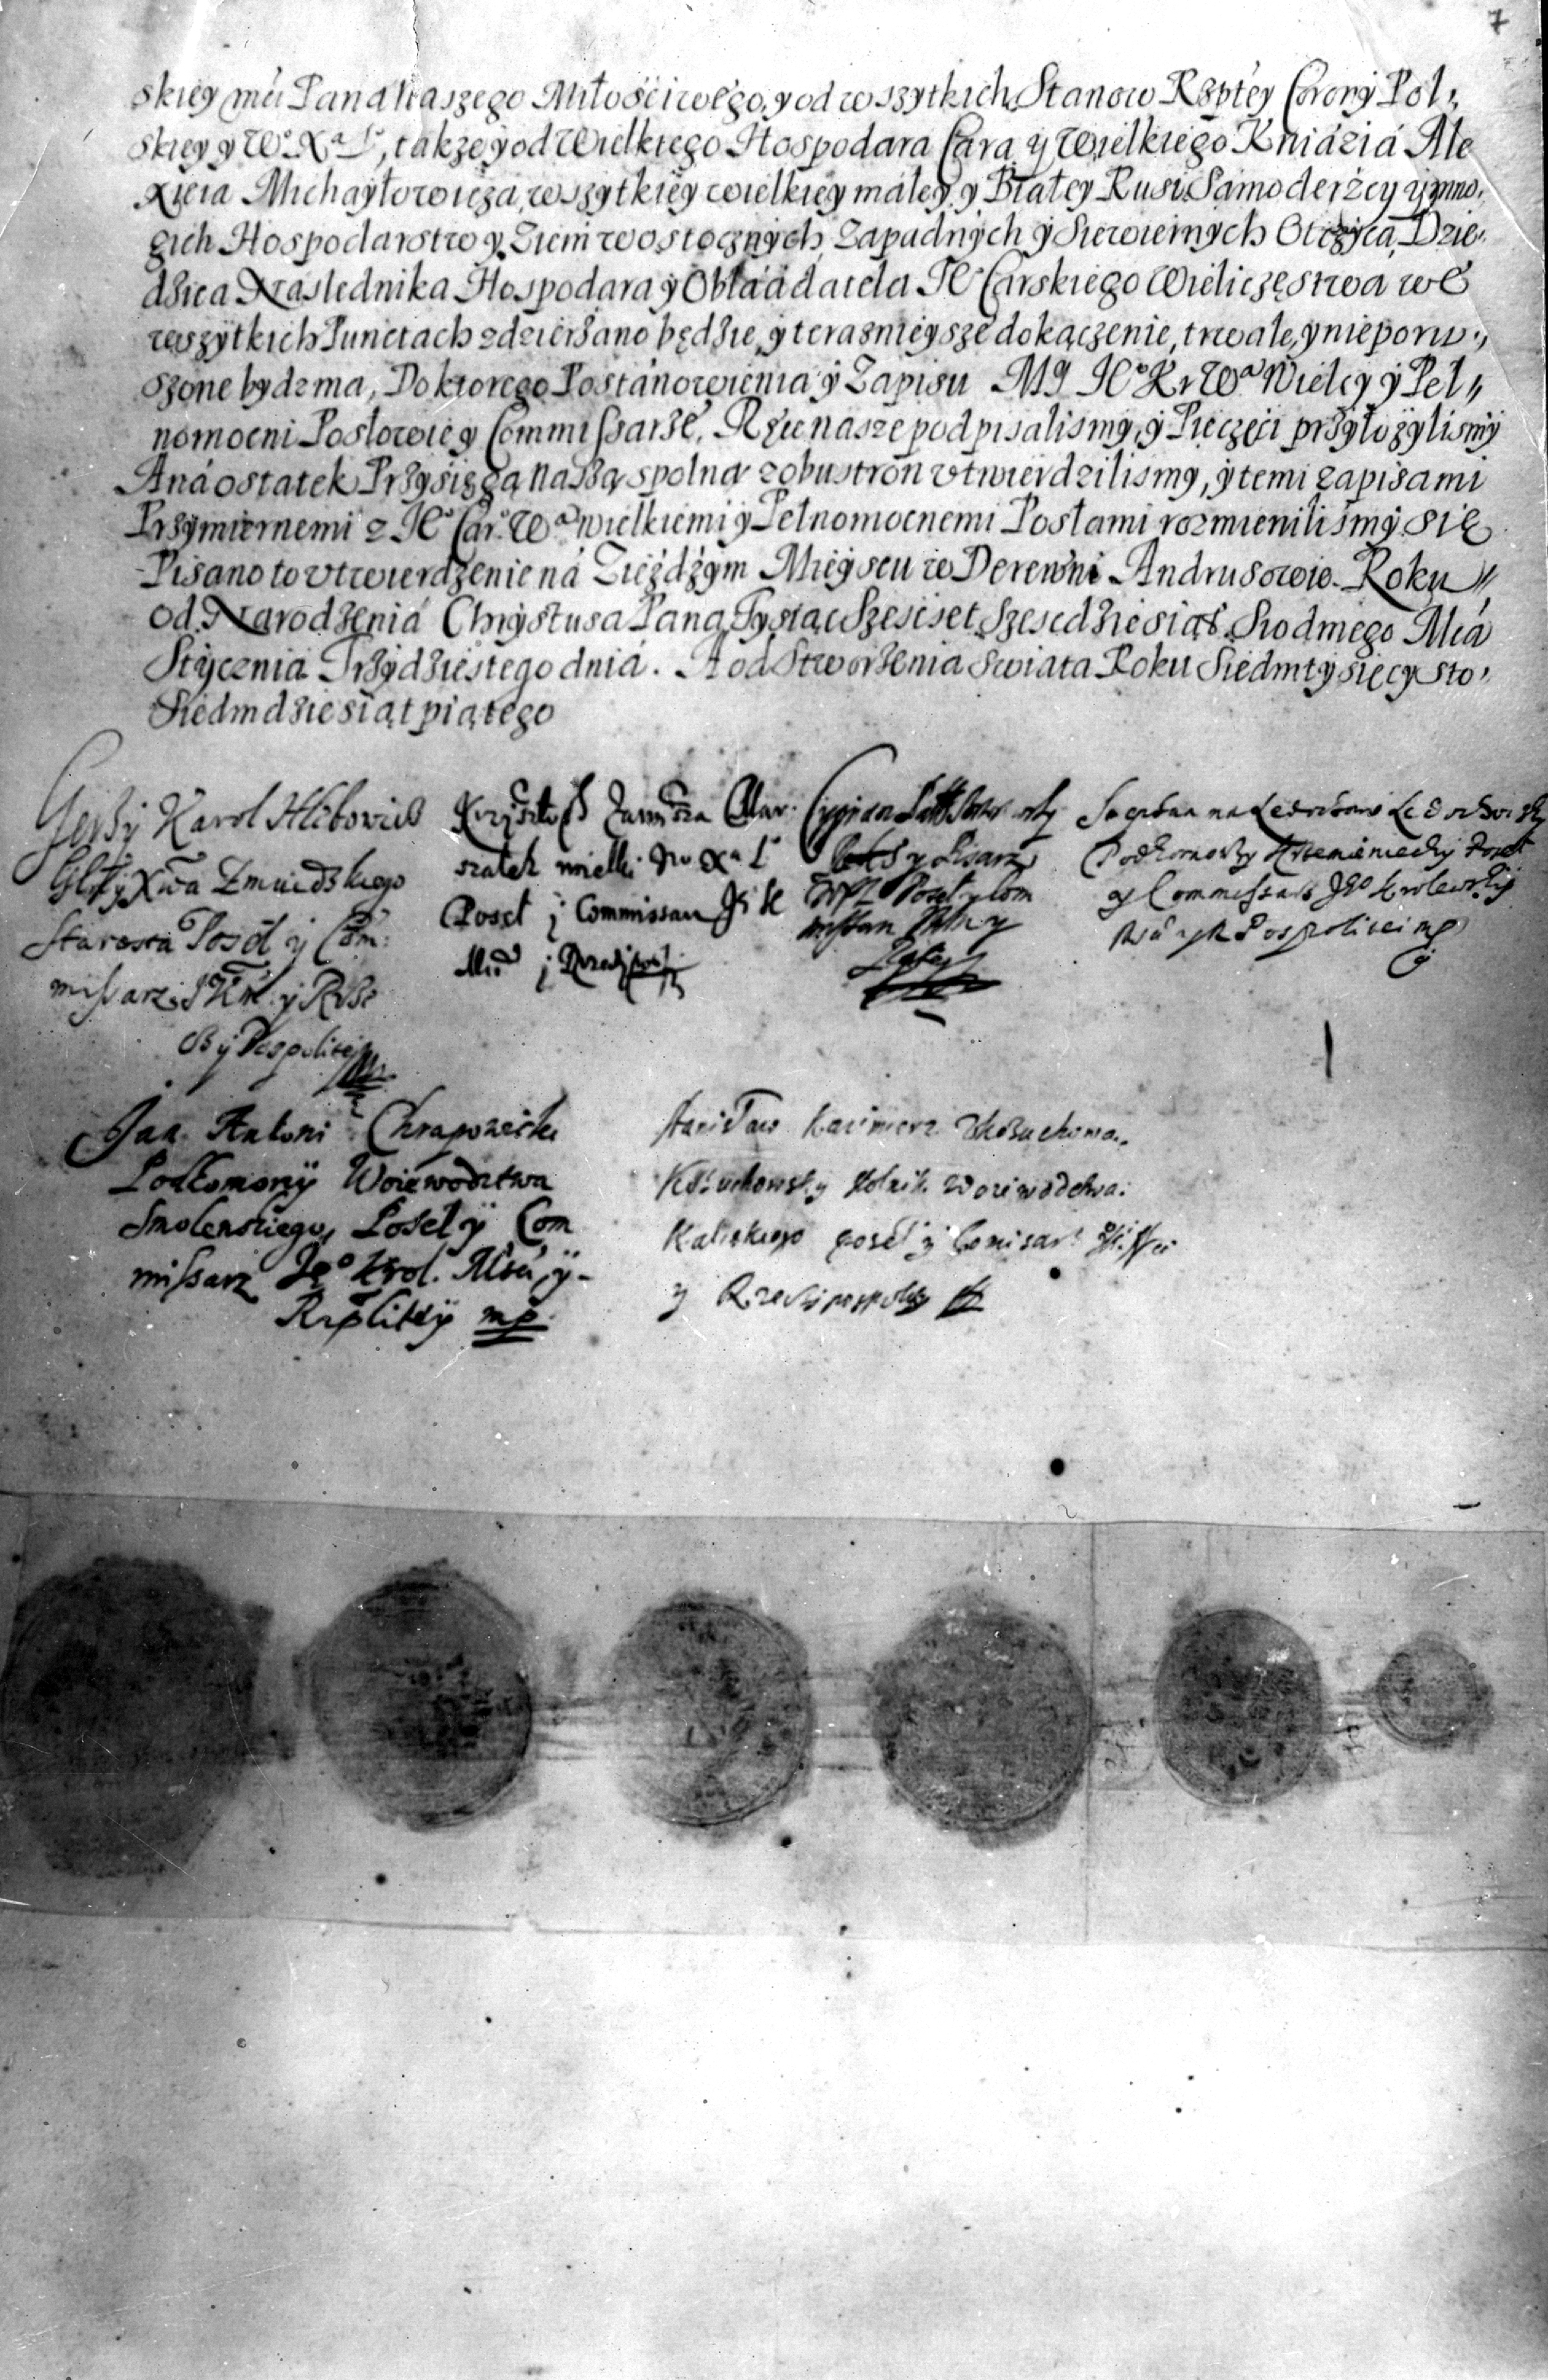 7
skiey mci Pana Naszego Miłościwego, y od wszytkich Stanow Rzptey Corony Pol„
skiey y Wo Xa Lo, takze y od Wielkiego Hospodara Cara y Wielkiego Kniáziá Ale
xieia Michayłowicza, wszytkiey wielkiey małey y Białey Rusi Samoderżcy y mno„
gich Hospodarstw y Ziem wostocznych Zapadnych y Siewiernych Otczyca, Dzie„
dzica Naslednika Hospodara y Obładatela Jo Carskiego Wieliczęstwa we
wszytkich Punctach zdzierżano będzie, y teraznieysze dokączenie, trwałe, y nieporu„
szone bydz ma, Do ktorego Postánowienia y Zapisu My Jo Kr Wa Wielcy y Peł„
nomocni Posłowie y Commissarze, Ręce nasze podpisalismy, y Pieczęci przyłożylismy
Aná ostatek Przysięgą naszą spolną z obu stron vtwierdzilismy, y temi zapisami
Przymiernemi z Jo Car. Wa wielkiemi y Pełnomocnemi Posłami rozmienilismy się
Pisano to vtwierdzenie ná Zieździym Mieyscu w Derewni Andrusowie. Roku
od Narodzeniá Chrystusa Pana Tysiąc Szescset Szescdziesiąt Siodmego Mcá
Stycznia Trzydziestego dniá. A od Stworzenia Swiata Roku Siedmtysięcy sto
Siedmdziesiąt piątego
Jerzy Karol Hlebowicz
Xwa Zmudzkiego
Starosta Poseł y Com:
missarz y Rze
czy Pospolitey
Krzysztoph Zawisza Mar:
szałek wielki Wo Xa Lo
Poseł j Commissarz
j
Cyprian
y Pisarz
Poseł y Com
missarz
Ledochowsky
Podkomorzy Krzemieniecky Poseł
y Commissarz Jgo Krolewskiy
Pospolitei mp
Jan Antoni Chrapowicki
Podkomorzy Woiewodztwa
Smolenskiego, Poseł y Com
missarz Jego Krol. Mści, y
Rzplitey mp.
Stanisław Kazimierz
Kożuchowsky Stolnik Woiewodztwa
Kaliskiego poseł y Comisarz
y Rzeczypospolitey